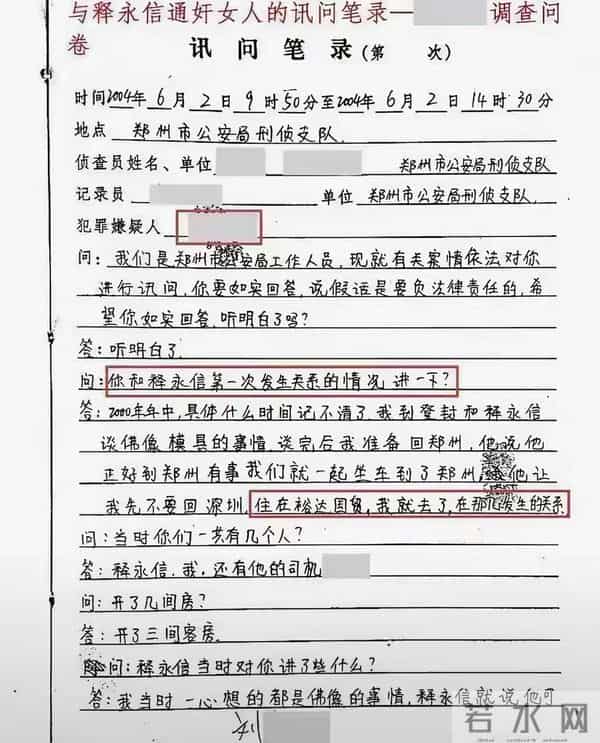 与释永信通奸女人的讯问笔录— 调查问
卷
讯问笔录(第 次)
时间2004年6月2日9时50分至2004年6月2日14时30分
地点 郑州市公安局刑侦支队.
侦查员姓名、单位 郑州市公安局刑侦支队
记录员 单位 郑州市公安局刑侦支队.
犯罪嫌疑人
问:我们是郑州市公安局工作人员,现就有关案情依法对你
进行讯问,你要如实回答,说假话是要负法律责任的,希
望你如实回答.听明白了吗?
答:听明白了.
问:你和释永信第一次发生关系的情况讲一下?
答:2000年年中,具体什么时间记不清了.我到登封和释永信
谈佛像模具的事情.谈完后我准备回郑州,他说他
正好到郑州有事我们就一起坐车到了郑州,他让
我先不要回深圳,住在裕达国贸,我就去了,在那儿发生的关系
问:当时你们一共有几个人?
答:释永信.我,还有他的司机
问:开了几间房?
答:开了三间客房.
问:释永信当时对你讲了些什么?
答:我当时一心想的都是佛像的事情,释永信就说他可
若水网